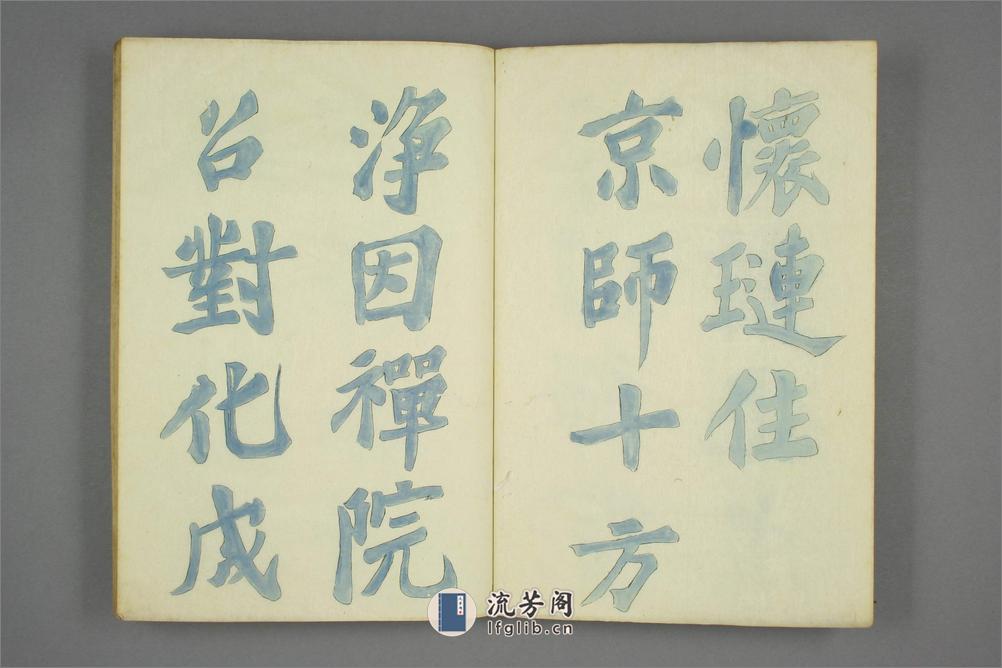 懷璉住
京師十方
淨因禪院
召對化成
流芳阁
lfglib.cn